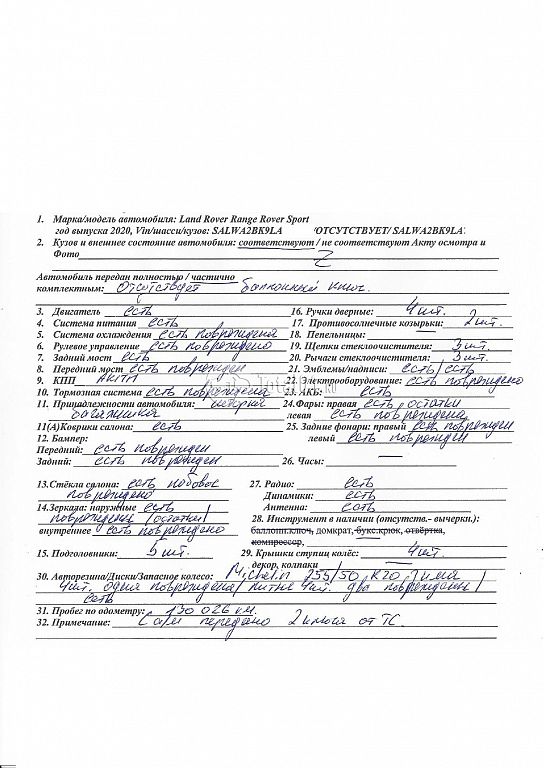 1. Марка/модель автомобиля: Land Rover Range Rover Sport
год выпуска 2020, Vin/шасси/кузов: SALWA2BK9LA /ОТСУТСТВУЕТ/ SALWA2BK9LA
2. Кузов и внешнее состояние автомобиля: соответствуют / не соответствуют Акту осмотра и
Фото
Автомобиль передан полностью / частично
комплектным: Отсутствует баллонный ключ.
3. Двигатель есть 16. Ручки дверные: 4 шт.
4. Система питания есть 17. Противосолнечные козырьки: 2 шт.
5. Система охлаждения есть повреждена 18. Пепельницы: —
6. Рулевое управление есть повреждено 19. Щетки стеклоочистителя: 3 шт.
7. Задний мост есть 20. Рычаги стеклоочистителя: 3 шт.
8. Передний мост есть поврежден 21. Эмблемы/надписи: есть/есть
9. КПП АКПП 22. Электрооборудование: есть повреждено
10. Тормозная система есть повреждена 23. АКБ: есть
11. Принадлежности автомобиля: шторка 24. Фары: правая есть остатки
багажника левая есть повреждена
11(А)Коврики салона: есть 25. Задние фонари: правый есть поврежден
12. Бампер: левый есть поврежден
Передний: есть поврежден
Задний: есть поврежден 26. Часы: —
13.Стёкла салона: есть лобовое 27. Радио: есть
повреждено Динамики: есть
14.Зеркала: наружные есть Антенна: есть
повреждены /остатки/ 28. Инструмент в наличии (отсутств.- вычеркн.):
внутреннее есть повреждено баллонн.ключ, домкрат, букс.крюк, отвёртка,
компрессор,
15. Подголовники: 5 шт. 29. Крышки ступиц колёс: 4 шт.
декор, колпаки —
30. Авторезина/Диски/Запасное колесо: Michelin 255/50 R20 Зима
4 шт. одна повреждена/ Литые 4 шт. два повреждены/
есть
31. Пробег по одометру: 130 026 км.
32. Примечание: передано 2 ключа от ТС.